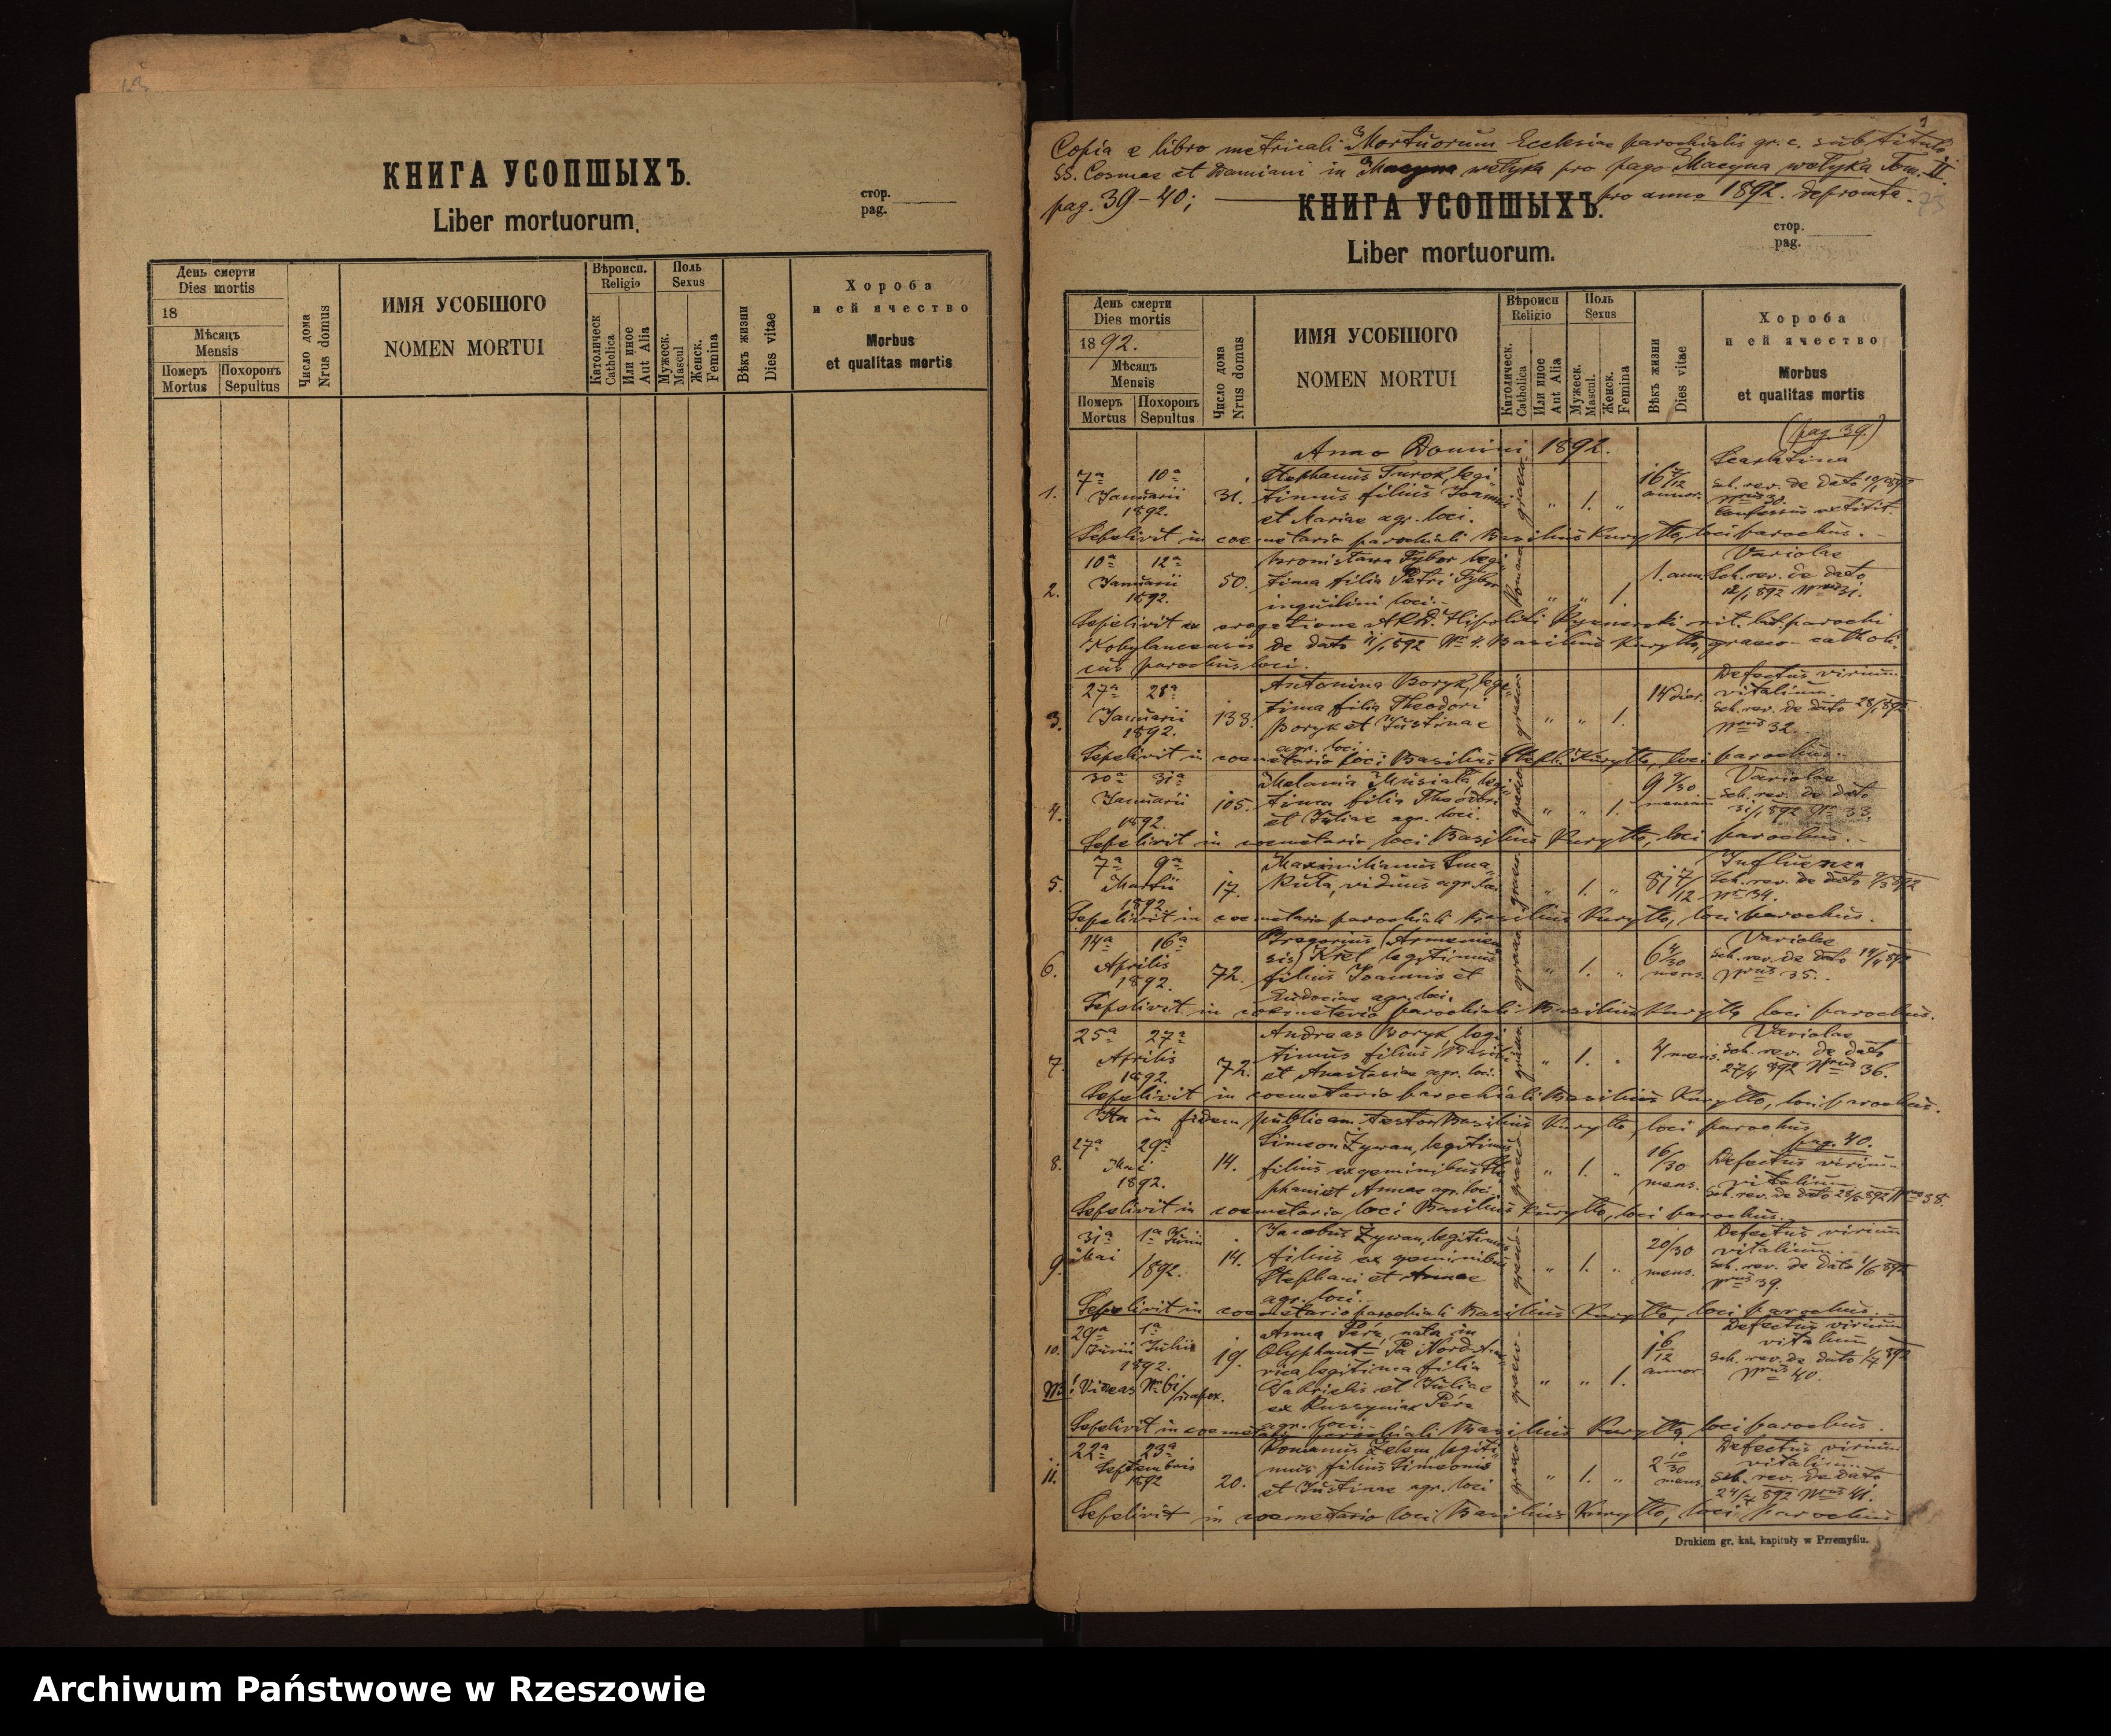 КНИГА УСОПШЫХЪ.
Liber mortuorum.
стор.
pag.
День смерти
Dies mortis
18
Мѣсяцъ
Mensis
Померъ
Mortus
Похоронъ
Sepultus
Число дома
Nrus domus
ИМЯ УСОБШОГО
NOMEN MORTUI
Вѣроисп.
Religio
Католическ
Catholica
Или иное
Aut Alia
Поль
Sexus
Мужеск.
Mascul
Женск.
Femina
Вѣкъ жизни
Dies vitae
Хороба
и ей ячество
Morbus
et qualitas mortis
1
Copia e libro metricali Mortuorum Ecclesiae parochialis gr. c. sub titulo
SS. Cosmae et Damiani in Macyna wełyka pro pago Macyna wełyka Tom. II.
pag. 39-40; pro anno 1892. depromta.
КНИГА УСОПШЫХЪ.
Liber mortuorum.
стор.
pag.
День смерти
Dies mortis
1892.
Мѣсяцъ
Mensis
Померъ
Mortus
Похоронъ
Sepultus
Число дома
Nrus domus
ИМЯ УСОБШОГО
NOMEN MORTUI
Вѣроисп
Religio
Католическ.
Catholica
Или иное
Aut Alia
Поль
Sexus
Мужеск.
Mascul.
Женск.
Femina
Вѣкъ жизни
Dies vitae
Хороба
и ей ячество
Morbus
et qualitas mortis
(pag. 39)
Anno Domini 1892.
1. 7ª 10ª Januarii 1892. 31.
Stephanus Turok, legi
timus filius Joannis
et Mariae agr. loci.
graeca " 1. " 16 7/12 annor.
Scarlatina
Sch. rev. de dato 10/1 892
Nrus 30.
Confessus extitit.
Sepelivit in coemetario parochiali Basilius Kuryłło, loci parochus.
2. 10ª 12ª Januarii 1892. 50.
Bronisława Tybor legi
tima filia Petri Tybor
inquilini loci.
romana " " 1. 1. ann.
Variolae
Sch. rev. de dato
12/1 892 Nrus 31.
Sepelivit ex rogatione Hipoliti rit. lat. parochi
Kobylancensis de dato 11/1 892 Nr. 4. Basilius Kuryłło, graeco-catholi
cus parochus loci.
3. 27ª 28ª Januarii 1892. 133.
Antonina Boryk, legi
tima filia Theodori
Boryk et Justinae
agr. loci.
graeca " " 1. 14 dier.
Defectus virium
vitalium.
Sch. rev. de dato 28/1 892
Nrus 32.
Sepelivit in coemetario loci Basilius Kuryłło, loci parochus.
4. 30ª 31ª Januarii 1892. 105.
Melania Musiała, legi
tima filia Theodori
et Juliae agr. loci.
graeca " " 1. 9 9/30 mensium
Variolae
Sch. rev. de dato
31/1 892 Nr. 33.
Sepelivit in coemetario loci Basilius Kuryłło, loci parochus.
5. 7ª 9ª Martii 1892. 17.
Maximilianus Sma
kuła, viduus agr. loci
graeca " 1. " 81 7/12
Influenza
Sch. rev. de dato 9/3 892
Nr. 34.
Sepelivit in coemetario parochiali Basilius Kuryłło, loci parochus.
6. 14ª 16ª Aprilis 1892. 72.
Gregorius (Armenien
sis) Kret legitimus
filius Joannis et
Eudociae agr. loci.
graeca " 1. " 6 4/30 mens.
Variolae
Sch. rev. de dato 14/4 892
Nrus 35.
Sepelivit in coemeterio parochiali Basilius Kuryłło loci parochus.
7. 25ª 27ª Aprilis 1892. 72.
Andreas Boryk, legi
timus filius Basilii
et Anastasiae agr. loci.
graeca " 1. " 4 mens.
Variolae
Sch. rev. de dato
27/4 892 Nrus 36.
Sepelivit in coemetario parochiali Basilius Kuryłło, loci parochus.
Ita in fidem publicam testor Basilius Kuryłło, loci parochus
pag. 40.
8. 27ª 29ª Mai 1892. 14.
Simeon Zywan, legitimus
filius ex geminibus Ste
phani et Annae agr. loci
graeca " 1. " 16/30 mens.
Defectus virium
vitalium
Sch. rev. de dato 28/5 892 Nrus 38.
Sepelivit in coemetario loci Basilius Kuryłło, loci parochus.
9. 31ª Mai 1ª Junii 1892. 14.
Jacobus Zywan, legitimus
filius ex geminibus
Stephani et Annae
agr. loci.
graeca " 1. " 20/30 mens.
Defectus virium
vitalium.
Sch. rev. de dato 1/6 892
Nrus 39.
Sepelivit in coemetario parochiali Basilius Kuryłło, loci parochus.
10. 29ª Junii 1ª Julii 1892. 19.
NB! Videas Nr. 6/
Anna Perz, nata in
Olyphant - Pa Nord Ame
rica legitima filia
Gabrielis et Juliae
ex Russyniak Perz
agr. loci.
graeca " " 1. 1 6/12 annor
Defectus virium
vitalium
Sch. rev. de dato 1/7 892
Nrus 40.
Sepelivit in coemetario parochiali Basilius Kuryłło, loci parochus.
11. 22ª 23ª Septembris 1892 20.
Romanus Zelem, legiti
mus filius Simeonis
et Justinae agr. loci
graeca " 1. " 2 10/30 mens.
Defectus virium
vitalium.
Sch. rev. de dato
892 Nrus 41.
Sepelivit in coemetario loci Basilius Kuryłło, loci parochus
Drukiem gr. kat. kapituły w Przemyślu.
Archiwum Państwowe w Rzeszowie